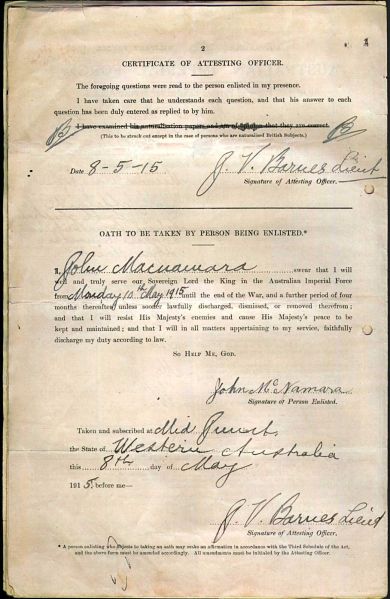 2
CERTIFICATE OF ATTESTING OFFICER.
The foregoing questions were read to the person enlisted in my presence.
I have taken care that he understands each question, and that his answer to each
question has been duly entered as replied to by him.
I have examined his naturalization papers and am of opinion that they are correct.
(This to be struck out except in the case of persons who are naturalised British Subjects.)
B B
Date 8-5-15 J. V. Barnes Lieut
Signature of Attesting Officer.
OATH TO BE TAKEN BY PERSON BEING ENLISTED.*
I, John Macnamara swear that I will
well and truly serve our Sovereign Lord the King in the Australian Imperial Force
from Monday 10th May 1915 until the end of the War, and a further period of four
months thereafter unless sooner lawfully discharged, dismissed, or removed therefrom; and
that I will resist His Majesty's enemies and cause His Majesty's peace to be
kept and maintained; and that I will in all matters appertaining to my service, faithfully
discharge my duty according to law.
So Help Me, God.
John McNamara
Signature of Person Enlisted.
Taken and subscribed at Mid
the State of Western Australia
this 8th day of May
1915 before me—
J. V. Barnes Lieut
Signature of Attesting Officer.
* A person enlisting who objects to taking an oath may make an affirmation in accordance with the Third Schedule of the Act,
and the above form must be amended accordingly. All amendments must be initialed by the Attesting Officer.